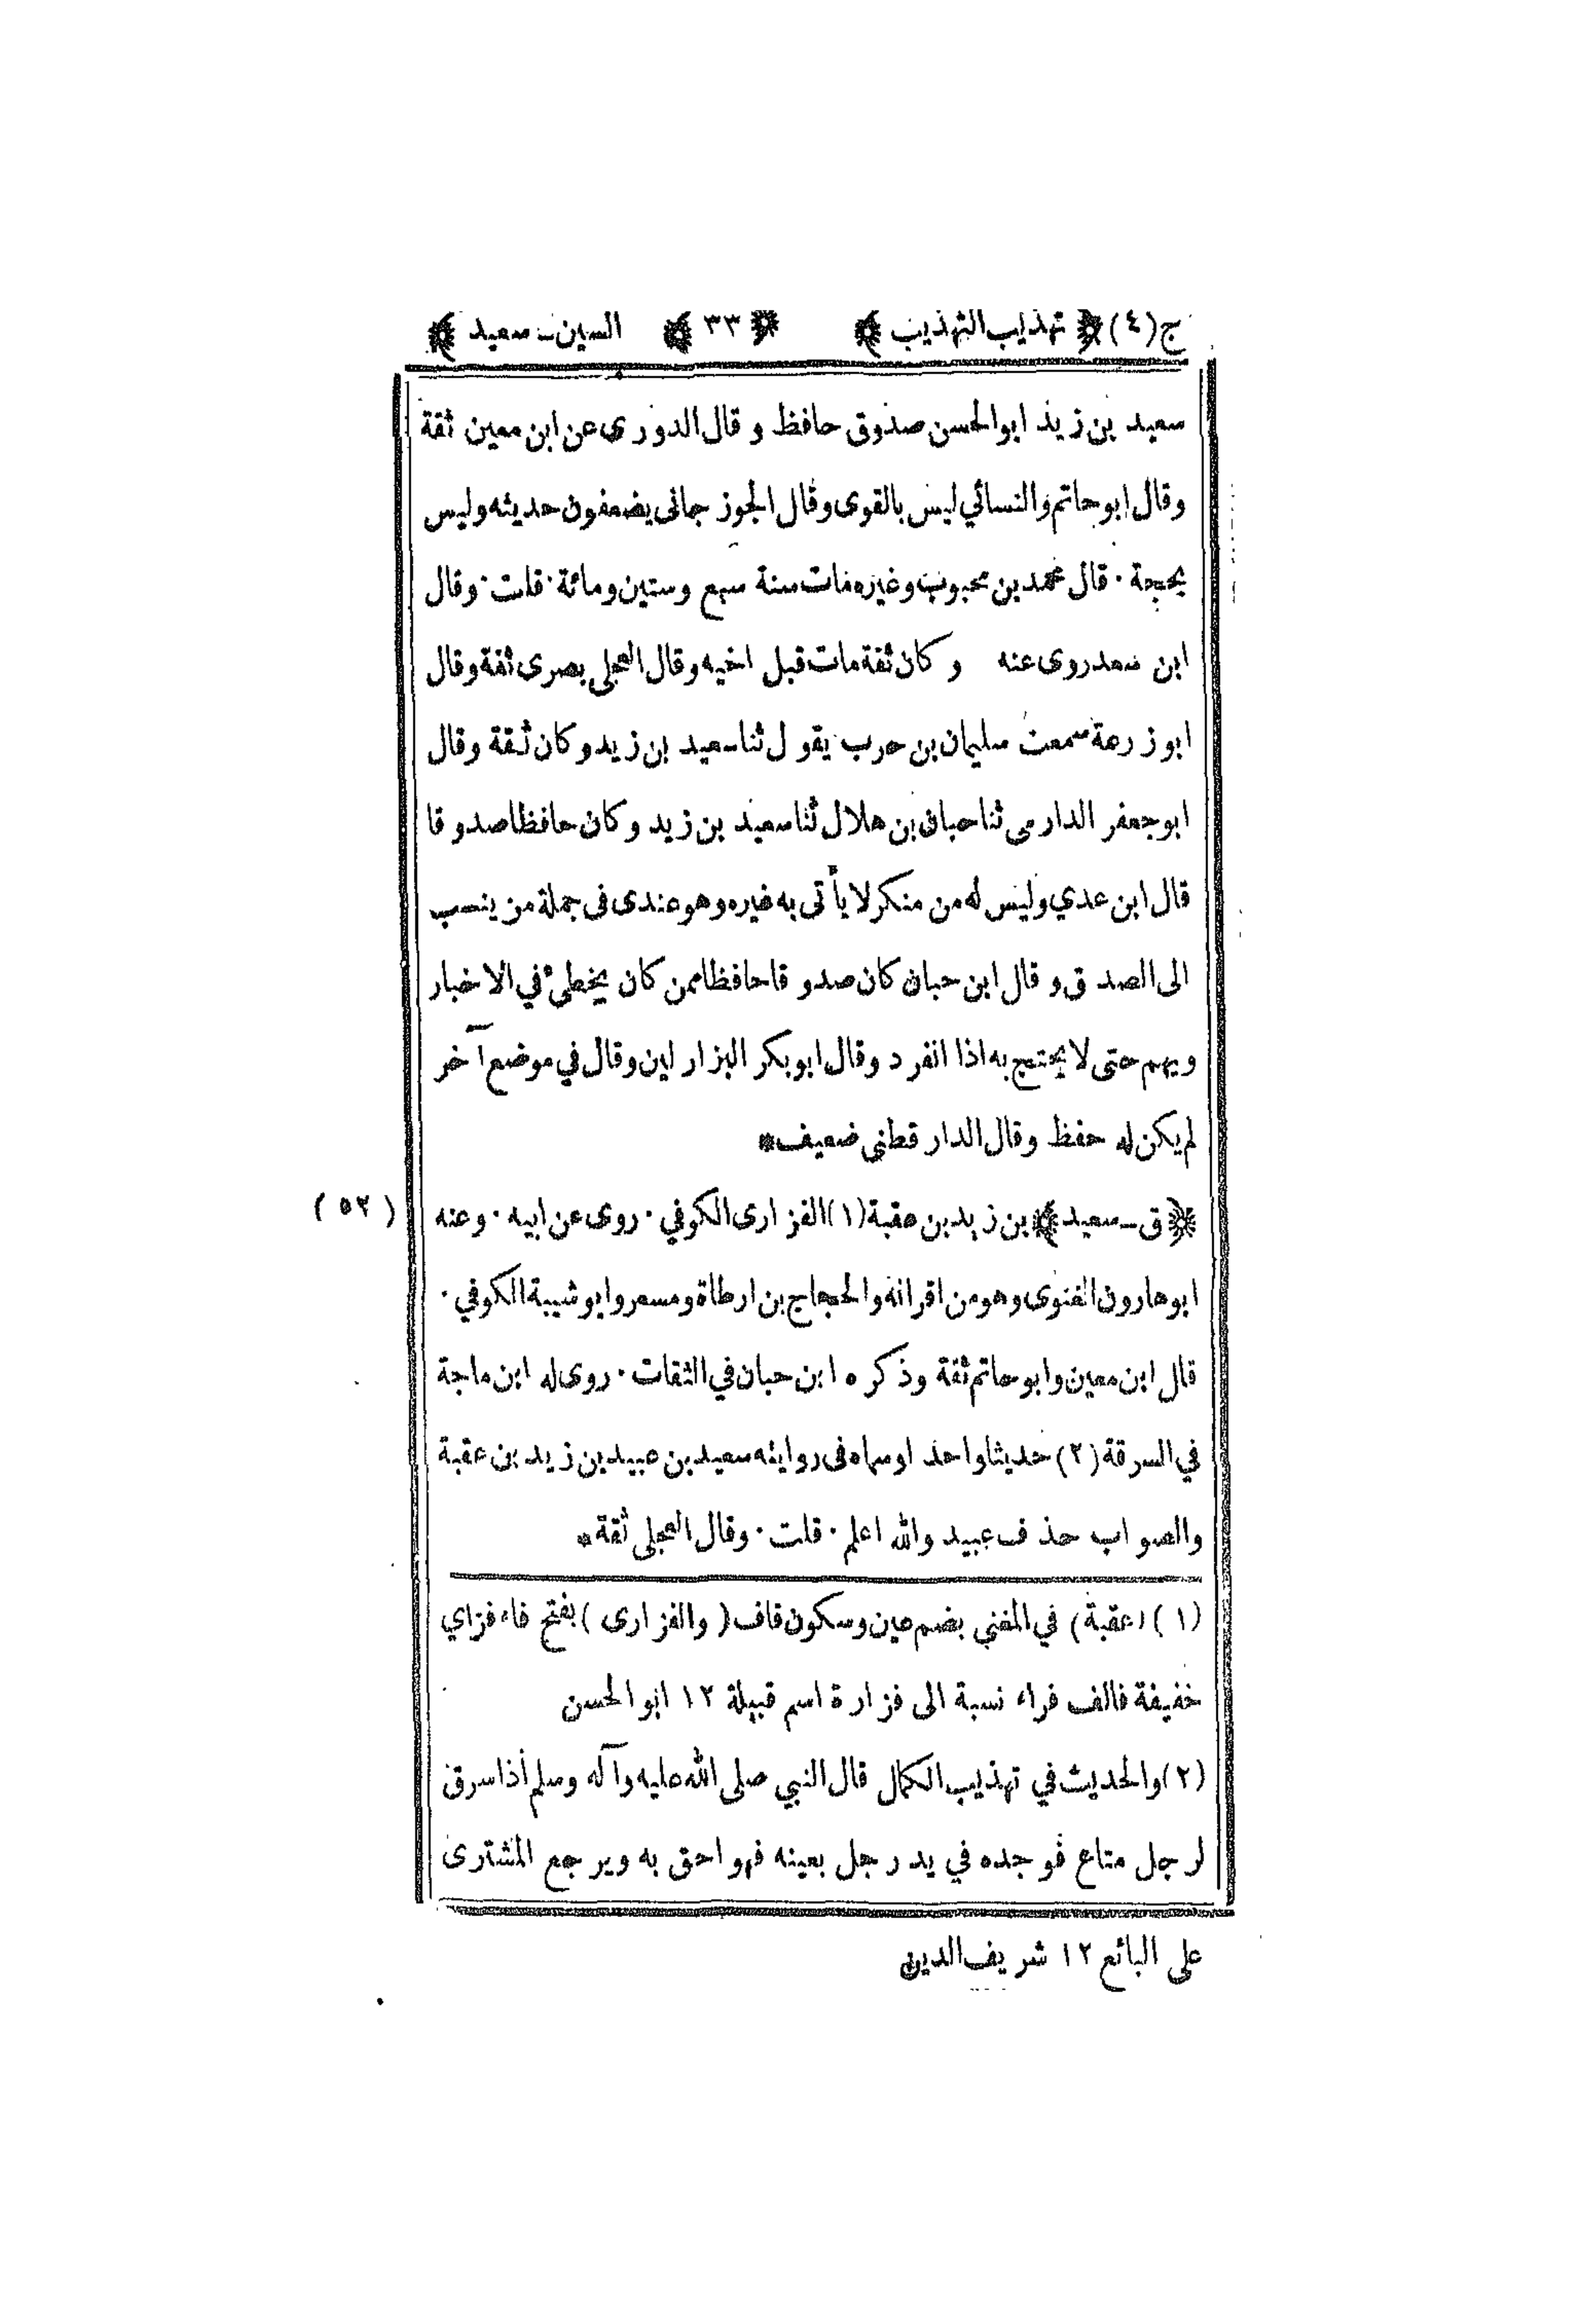 ج (٤) ﴿ تهذيب التهذيب ﴾ ﴿ ٣٣ ﴾ السين - سعيد ﴾
سعيد بن زيد ابو الحسن صدوق حافظ وقال الدورى عن ابن معين ثقة
وقال ابو حاتم والنسائي ليس بالقوى وقال الجوزجانى يضعفون حديثه وليس
بحجة · قال محمد بن محبوب وغيره مات سنة سبع وستين ومائة · قلت · وقال
ابن سعد روى عنه و كان ثقة مات قبل اخيه وقال العجلى بصرى ثقة وقال
ابو زرعة سمعت سليمان بن حرب يقول ثنا سعيد بن زيد وكان ثقة وقال
ابو جعفر الدارمى ثنا حبان بن هلال ثنا سعيد بن زيد وكان حافظا صدوقا
قال ابن عدي وليس له من منكر لا يأتى به غيره وهو عندى فى جملة من ينسب
الى الصدق وقال ابن حبان كان صدوقا حافظا ممن كان يخطئ في الاخبار
ويهم حتى لا يحتج به اذا انفرد وقال ابو بكر البزار لين وقال في موضع آخر
لم يكن له حفظ وقال الدارقطنى ضعيف *
﴿ ق - سعيد ﴾ بن زيد بن عقبة (١) الفزارى الكوفي · روى عن ابيه · وعنه (٥٢)
ابو هارون الغنوى وهو من اقرانه والحجاج بن ارطاة ومسعر وابو شيبة الكوفي ·
قال ابن معين وابو حاتم ثقة وذكره ابن حبان في الثقات · روى له ابن ماجة
في السرقة (٢) حديثا واحدا وسماه فى روايته سعيد بن عبيد بن زيد بن عقبة
والصواب حذف عبيد والله اعلم · قلت · وقال العجلى ثقة *
(١) (عقبة) في المغني بضم عين وسكون قاف (والفزارى) بفتح فاء فزاي
خفيفة فالف فراء نسبة الى فزارة اسم قبيلة ١٢ ابو الحسن
(٢) والحديث في تهذيب الكمال قال النبي صلى الله عليه وآله وسلم اذا سرق
لرجل متاع فوجده في يد رجل بعينه فهو احق به ويرجع المشترى
على البائع ١٢ شريف الدين